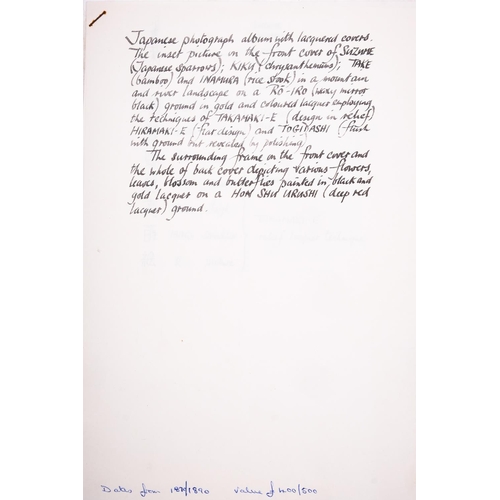 Japanese photograph album with lacquered covers.
The inset picture on the front cover of SUZUME
(Japanese sparrows); KIKU (chrysanthemums); TAKE
(bamboo) and INAMURA (rice stook) in a mountain
and river landscape on a RŌ-IRO (waxy mirror
black) ground in gold and coloured lacquer employing
the techniques of TAKAMAKI-E (design in relief)
HIRAMAKI-E (flat design) and TOGIDASHI (flush
with ground but revealed by polishing)
The surrounding frame on the front cover and
the whole of back cover depicting various flowers,
leaves, blossom and butterflies painted in black and
gold lacquer on a HON SHU URUSHI (deep red
lacquer) ground.
Dates from /1890 Value £400/500